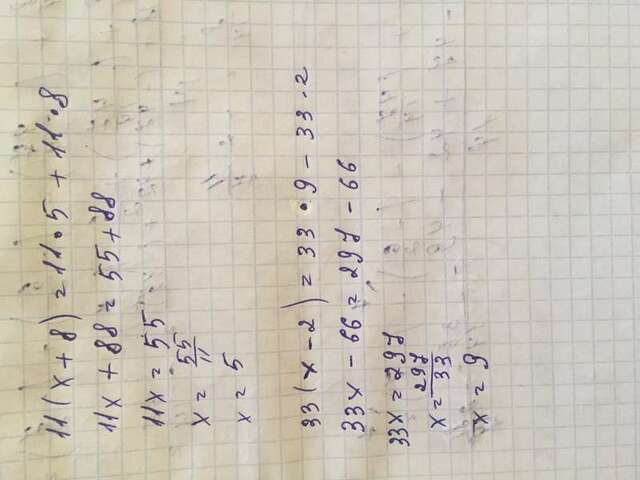 11(x + 8) = 11 · 5 + 11 · 8
11x + 88 = 55 + 88
11x = 55
x = 55/11
x = 5
33(x - 2) = 33 · 9 - 33 · 2
33x - 66 = 297 - 66
33x = 297
x = 297/33
x = 9